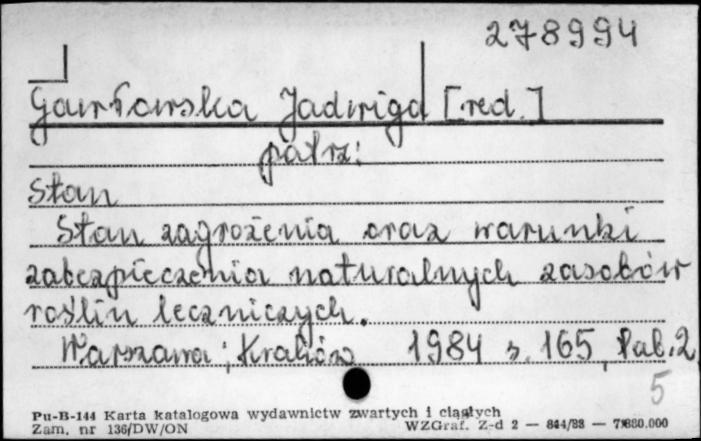 278994
Gawłowska Jadwiga [red.]
patrz:
Stan
Stan zagrożenia oraz warunki
zabezpieczenia naturalnych zasobów
roślin leczniczych.
Warszawa; Kraków 1984 s. 165, tab. 2
5
Pu-B-144 Karta katalogowa wydawnictw zwartych i ciągłych
Zam. nr 136/DW/ON WZGraf. Z-d 2 — 844/88 — .000